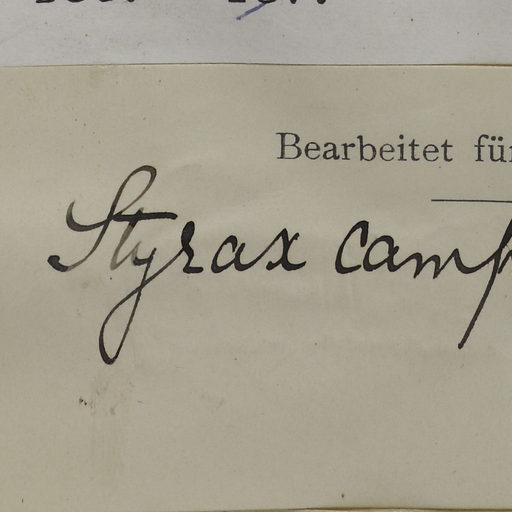 Bearbeitet für
Styrax camp